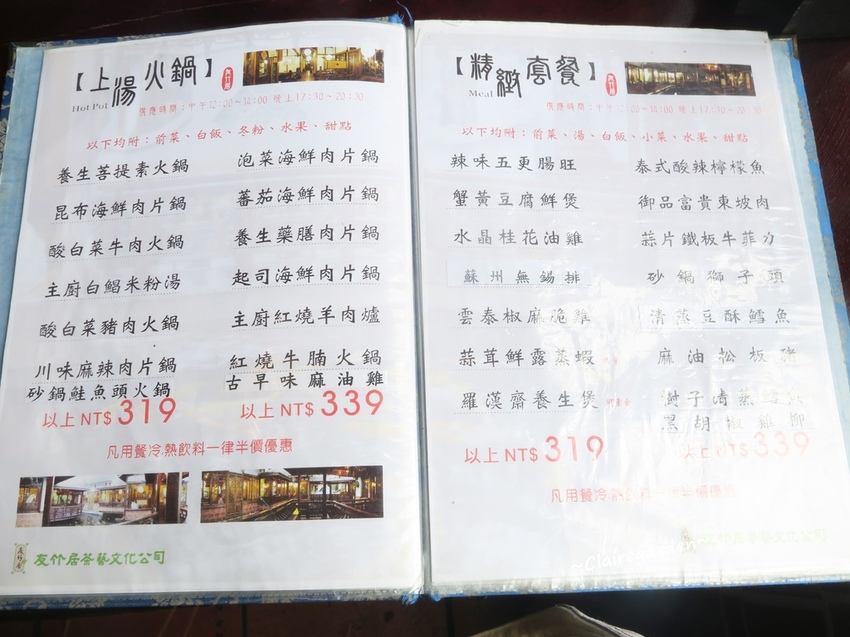 【上湯火鍋】
Hot Pot
供應時間：中午12:00~14:00 晚上17:30~20:30
以下均附：前菜、白飯、冬粉、水果、甜點
養生菩提素火鍋
昆布海鮮肉片鍋
酸白菜牛肉火鍋
主廚白鯧米粉湯
酸白菜豬肉火鍋
川味麻辣肉片鍋
砂鍋鮭魚頭火鍋
以上 NT$ 319
泡菜海鮮肉片鍋
蕃茄海鮮肉片鍋
養生藥膳肉片鍋
起司海鮮肉片鍋
主廚紅燒羊肉爐
紅燒牛腩火鍋
古早味麻油雞
以上 NT$ 339
凡用餐冷.熱飲料一律半價優惠
友竹居茶藝文化公司
【精緻套餐】
Meal
供應時間：中午12:00~14:00 晚上17:30~20:30
以下均附：前菜、湯、白飯、小菜、水果、甜點
辣味五更腸旺
蟹黃豆腐鮮煲
水晶桂花油雞
蘇州無錫排
雲泰椒麻脆雞
蒜茸鮮露蒸蝦
羅漢齋養生煲
以上 NT$ 319
泰式酸辣檸檬魚
御品富貴東坡肉
蒜片鐵板牛菲力
砂鍋獅子頭
清蒸豆酥鱈魚
麻油松板豬
樹子清蒸
黑胡椒雞柳
以上 NT$ 339
凡用餐冷.熱飲料一律半價優惠
友竹居茶藝文化公司